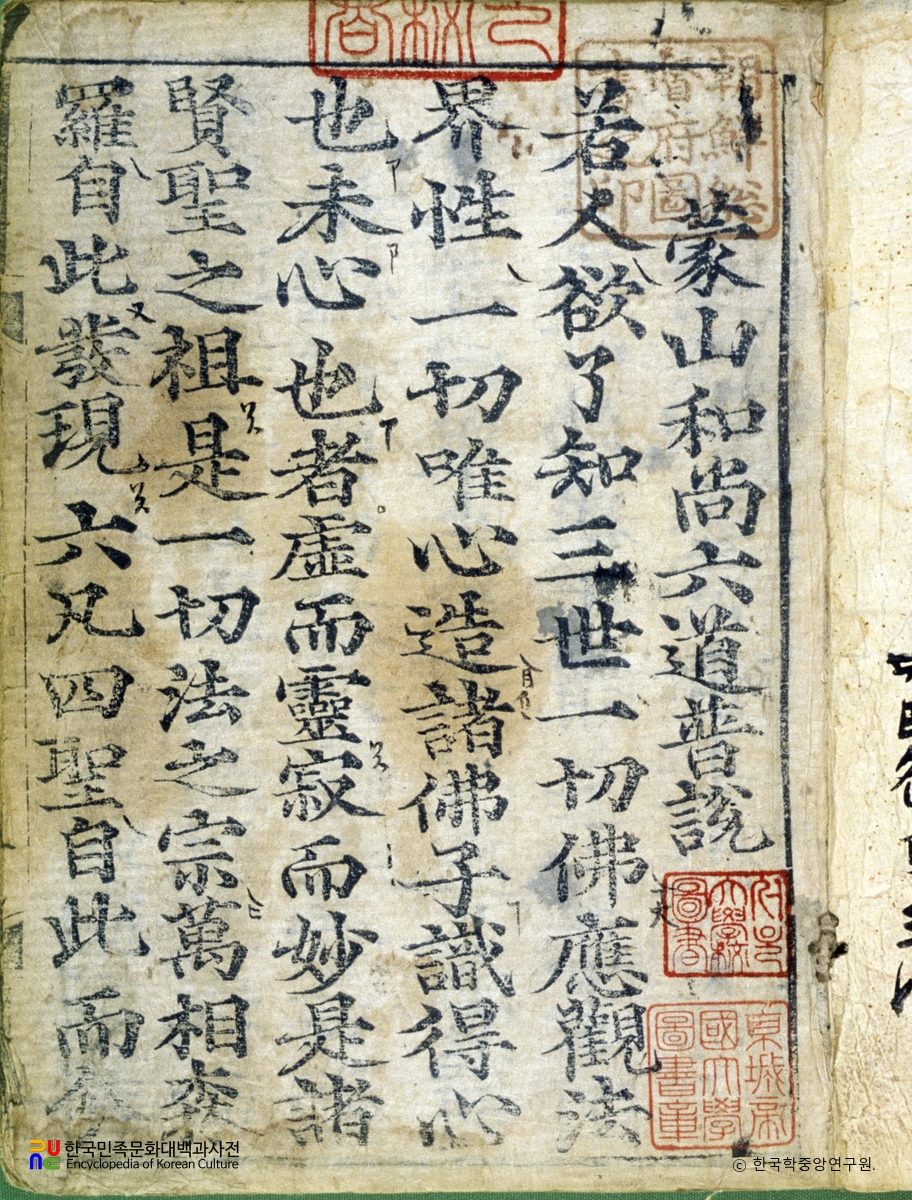 蒙山和尚六道普說
若人欲了知三世一切佛應觀法
界性一切唯心造諸佛子識得心
也未心也者虛而靈寂而妙是諸
賢聖之祖是一切法之宗萬相森
羅自此發現六凡四聖自此而
朝鮮總督府圖書之印
京城帝國大學圖書章
한국민족문화대백과사전
Encyclopedia of Korean Culture
© 한국학중앙연구원.